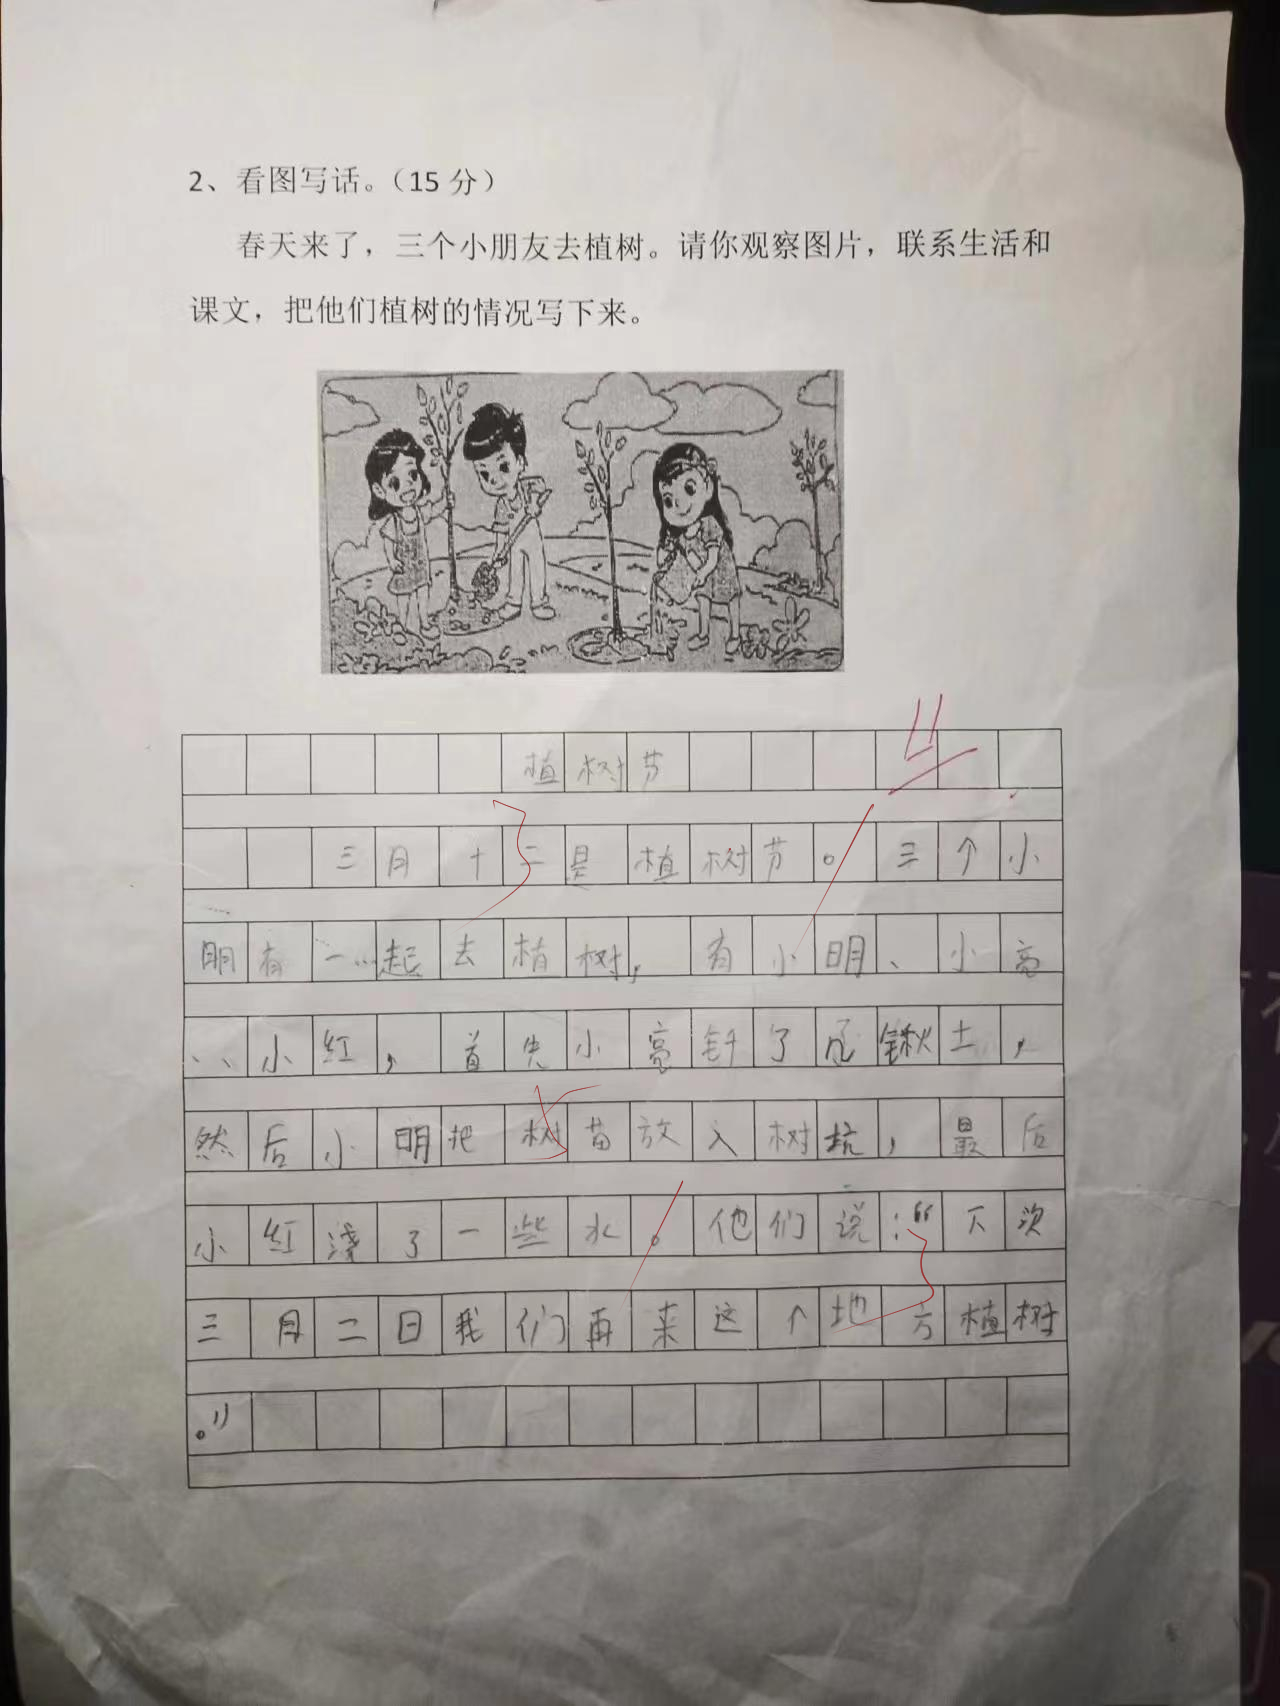 2、看图写话。（15 分）
春天来了，三个小朋友去植树。请你观察图片，联系生活和
课文，把他们植树的情况写下来。
11
植树节
三月十二是植树节。三个小
明有一起去植树，有小明、小亮
、小红，首先小亮铲了几锹土，
然后小明把树苗放入树坑，最后
小红浇了一些水。他们说：“下次
三月二日我们再来这个地方植树
。”